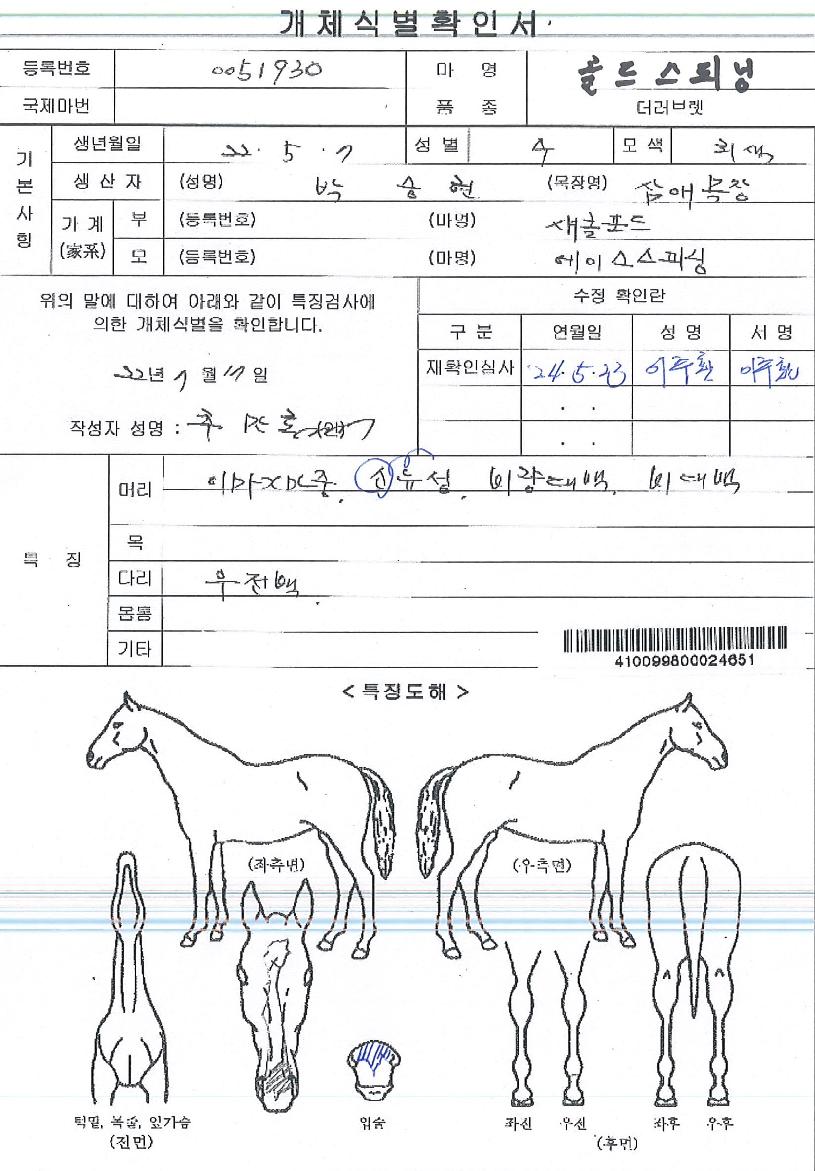 개체식별확인서
등록번호 0051930 마 명 골드스피닝
국제마번 품 종 더러브렛
기본사항
생년월일 22. 5. 7 성별 수 모색 회색
생산자 (성명) 박 송 현 (목장명) 삼애목장
가계(家系) 부 (등록번호) (마명) 섀클포드
모 (등록번호) (마명) 에이스스피닝
위의 말에 대하여 아래와 같이 특징검사에
의한 개체식별을 확인합니다.
22년 7월 17일
작성자 성명 :
수정 확인란
구 분 연월일 성 명 서 명
재확인심사 '24.5.23 이주환 이주환
. .
. .
특 징
머리 류성, 비량대백, 비대백
목
다리 우전백
몸통
기타
410099800024651
< 특징도해 >
(좌측면) (우측면)
턱밑, 목줄, 앞가슴 입술 좌전 우전 좌후 우후
(전면) (후면)